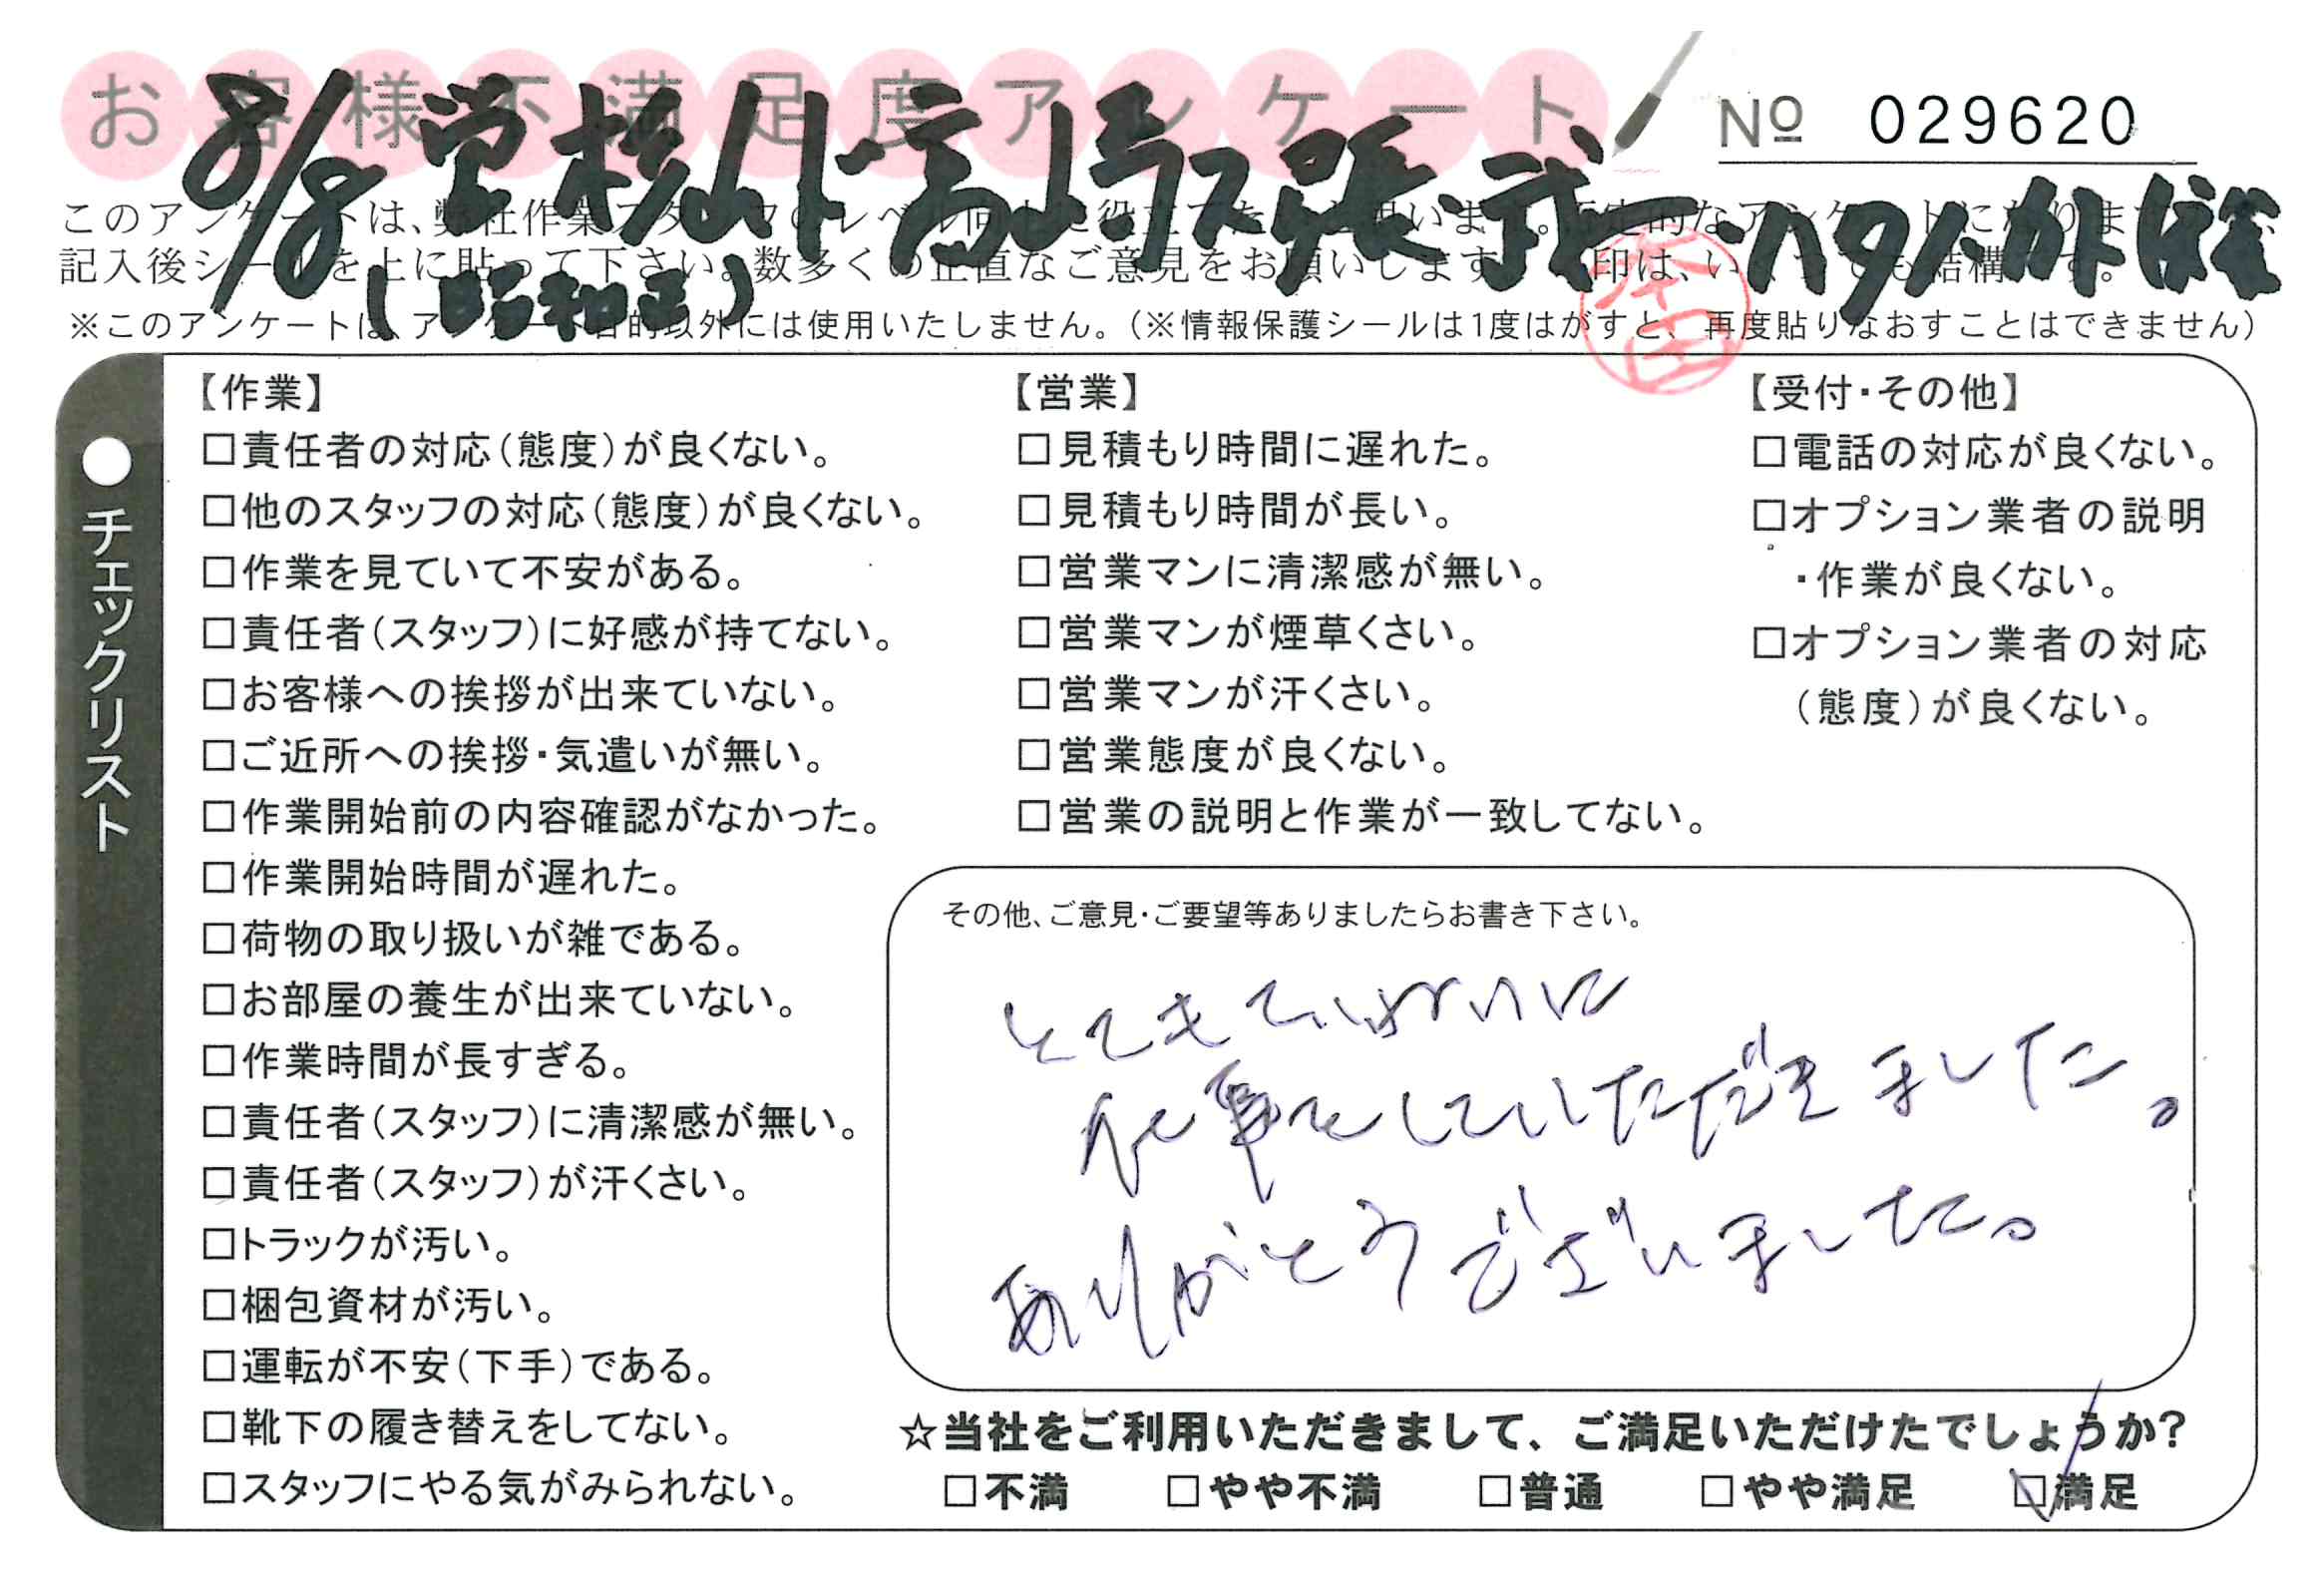 お客様不満足度アンケート
№ 029620
8/8
(昭和区)
※このアンケートは、アンケート目的以外には使用いたしません。（※情報保護シールは1度はがすと、再度貼りなおすことはできません）
●チェックリスト
【作業】
□責任者の対応（態度）が良くない。
□他のスタッフの対応（態度）が良くない。
□作業を見ていて不安がある。
□責任者（スタッフ）に好感が持てない。
□お客様への挨拶が出来ていない。
□ご近所への挨拶・気遣いが無い。
□作業開始前の内容確認がなかった。
□作業開始時間が遅れた。
□荷物の取り扱いが雑である。
□お部屋の養生が出来ていない。
□作業時間が長すぎる。
□責任者（スタッフ）に清潔感が無い。
□責任者（スタッフ）が汗くさい。
□トラックが汚い。
□梱包資材が汚い。
□運転が不安（下手）である。
□靴下の履き替えをしてない。
□スタッフにやる気がみられない。
【営業】
□見積もり時間に遅れた。
□見積もり時間が長い。
□営業マンに清潔感が無い。
□営業マンが煙草くさい。
□営業マンが汗くさい。
□営業態度が良くない。
□営業の説明と作業が一致してない。
【受付・その他】
□電話の対応が良くない。
□オプション業者の説明
・作業が良くない。
□オプション業者の対応
（態度）が良くない。
その他、ご意見・ご要望等ありましたらお書き下さい。
とてもていねいに
仕事をしていただきました。
ありがとうございました。
☆当社をご利用いただきまして、ご満足いただけたでしょうか？
□不満 □やや不満 □普通 □やや満足 ☑満足